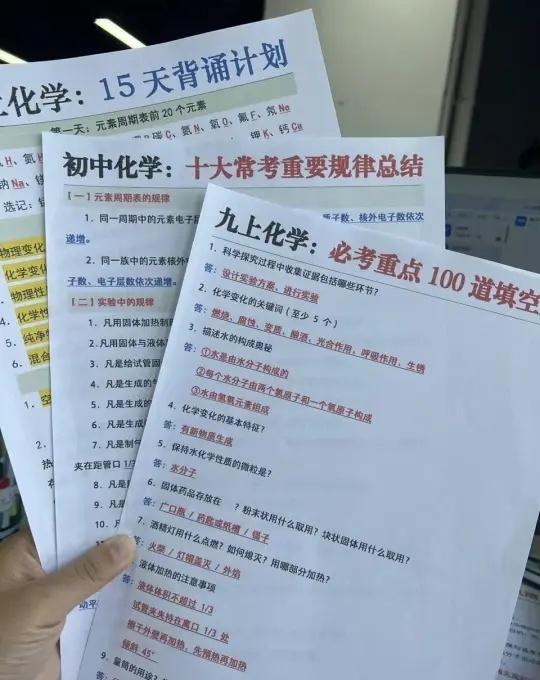 上化学：15天背诵计划
第一天：元素周期表前 20 个元素
碳C、氮N、氧O、氟F、氖Ne
钾K、钙Ca
钠Na、
选记：
物理变化
化学变化
物理性
化学性
5. 纯净物
6. 混合
初中化学：十大常考重要规律总结
【一】元素周期表的规律
1．同一周期中的元素电子层
质子数、核外电子数依次
递增。
2．同一族中的元素核外
子数、电子层数依次递增。
【二】实验中的规律
1．凡用固体加热制
2．凡用固体与液体
3．凡是给试管固
4．凡是生成的气
5．凡是生成的
6．凡是生成
7．凡是制气
夹在距管口 1/3
8．凡是
9．凡是
10．凡
九上化学：必考重点 100 道填空
1、科学探究过程中收集证据包括哪些环节？
答：设计实验方案、进行实验
2、化学变化的关键词（至少 5 个）
答：燃烧、腐蚀、变质、酿酒、光合作用、呼吸作用、生锈
3、描述水的构成奥秘
答：①水是由水分子构成的
②每个水分子由两个氢原子和一个氧原子构成
③水由氢氧元素组成
4、化学变化的基本特征？
答：有新物质生成
5、保持水化学性质的微粒是？
答：水分子
6、固体药品存放在 ？粉末状用什么取用？块状固体用什么取用？
答：广口瓶 / 药匙或纸槽 / 镊子
7、酒精灯用什么点燃？如何熄灭？用哪部分加热？
答：火柴 / 灯帽盖灭 / 外焰
液体加热的注意事项
答：液体体积不超过 1/3
试管夹夹持在离口 1/3 处
擦干外壁再加热，先预热再加热
倾斜 45°
9、量筒的用途？